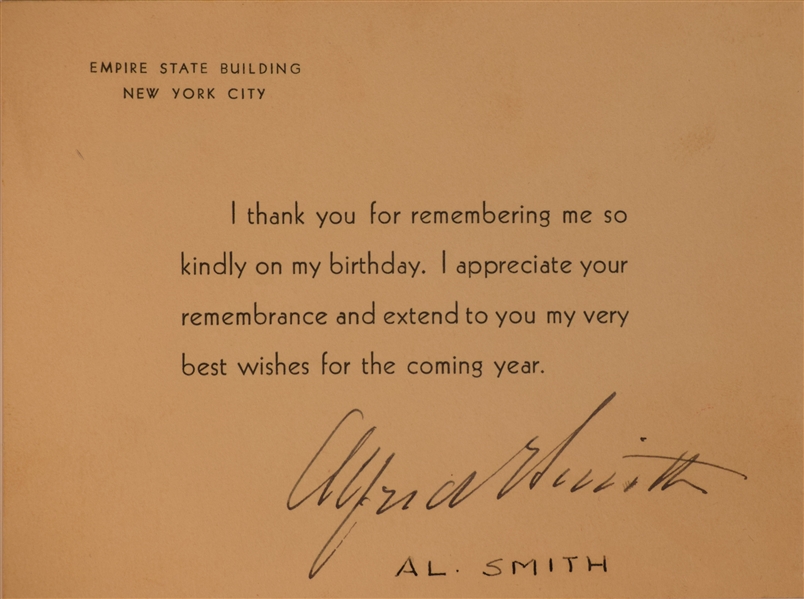 EMPIRE STATE BUILDING
NEW YORK CITY
I thank you for remembering me so
kindly on my birthday. I appreciate your
remembrance and extend to you my very
best wishes for the coming year.
Alfred E Smith
AL. SMITH